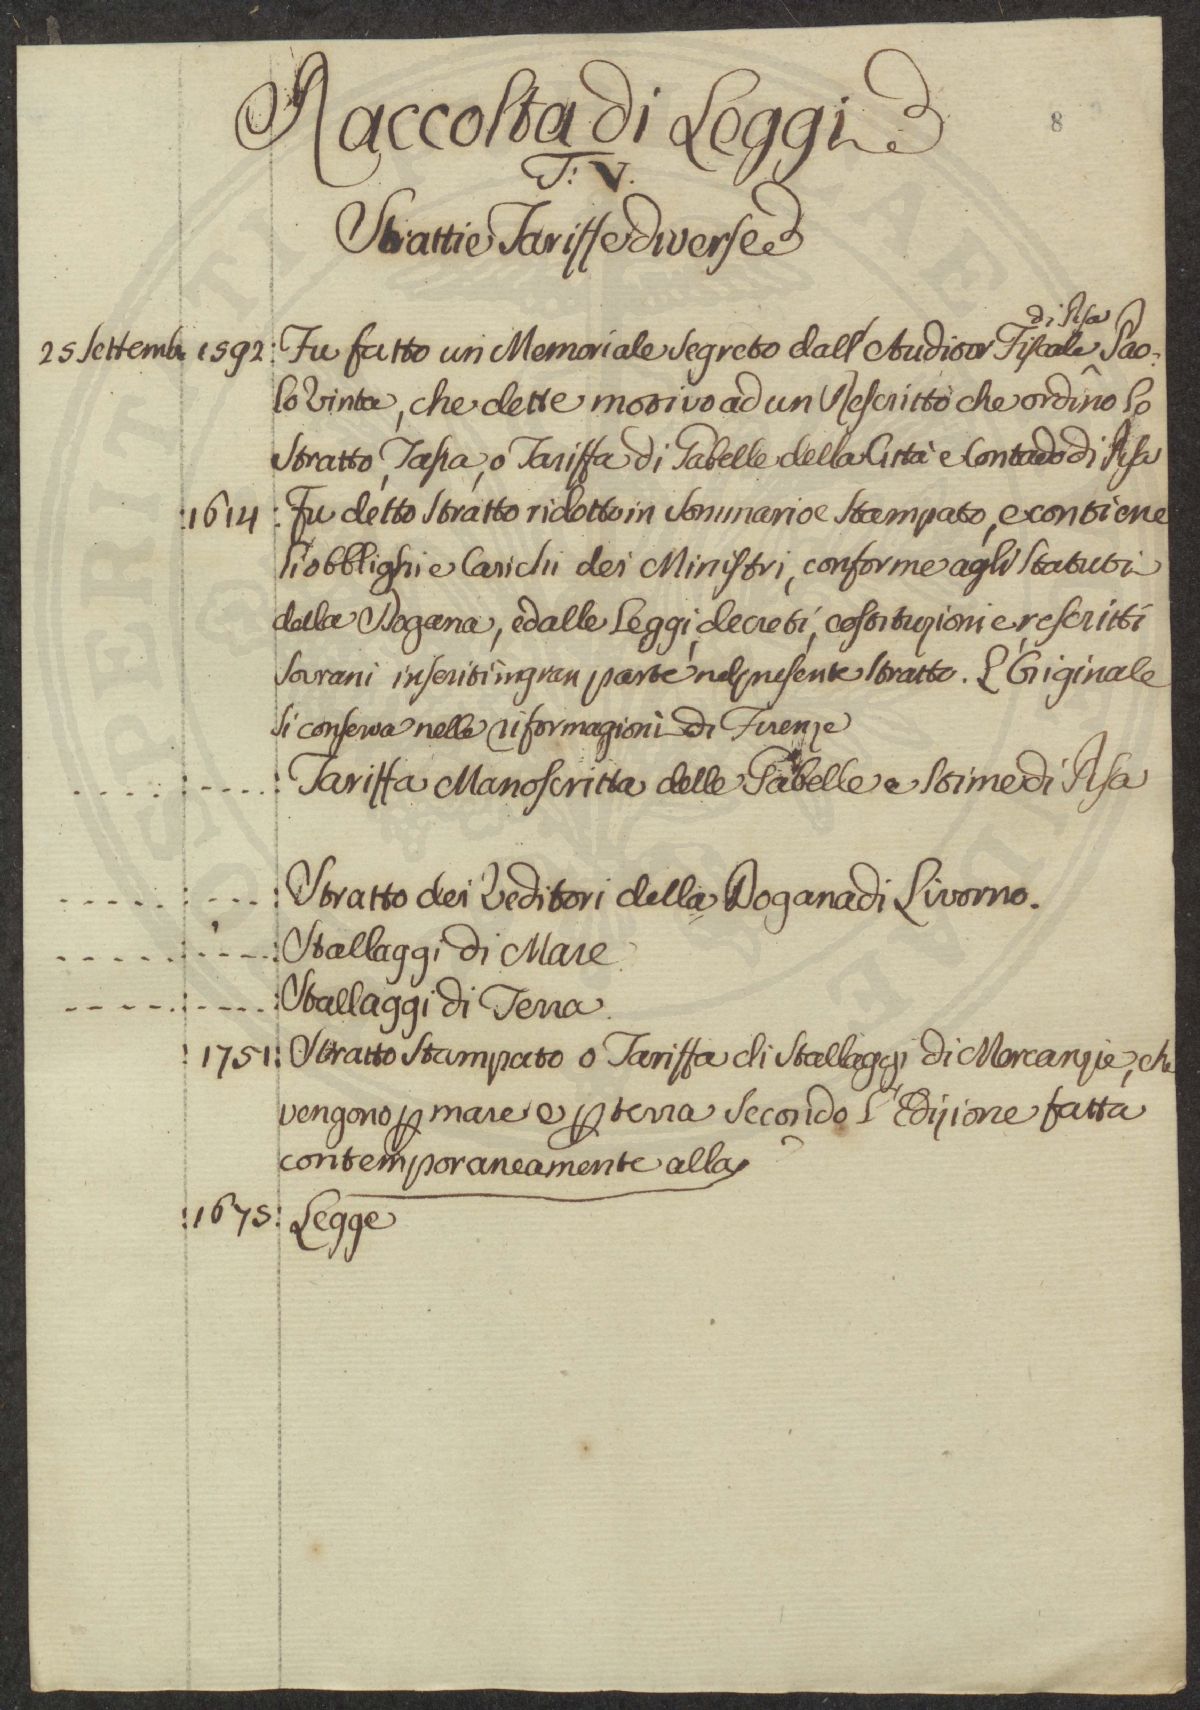 Raccolta di Leggi
8
T: V.
Stratti e Tariffe diverse
di Pisa
25 Settembr 1592: Fu fatto un Memoriale segreto dall'Auditor Fiscale Pao-
lo Vinta, che dette motivo ad un Rescritto che ordinò lo
Stratto, Tassa, o Tariffa di Gabelle della Città e Contado di Pisa
:1614: Fu detto Stratto ridotto in Sommario e Stampato, e contiene
li obblighi e Carichi dei Ministri, conforme agli Statuti
della Dogana, e dalle Leggi, decreti, costituzioni e rescritti
Sovrani inseriti in gran parte nel presente Stratto. L'Originale
si conserva nelle riformagioni di Firenze
Tariffa Manoscritta delle Gabelle e Stime di Pisa
Stratto dei Veditori della Dogana di Livorno.
Stallaggi di Mare
Stallaggi di Terra.
:1751: Stratto Stampato o Tariffa di Stallaggi di Mercanzie, che
vengono p mare e p terra secondo l'Edizione fatta
contemporaneamente alla
:1675: Legge